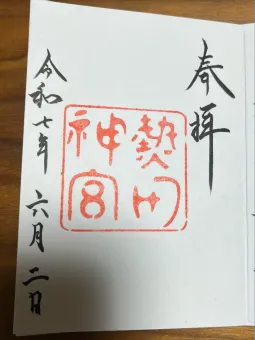 奉拝
熱田
神宮
令和七年 六月二日